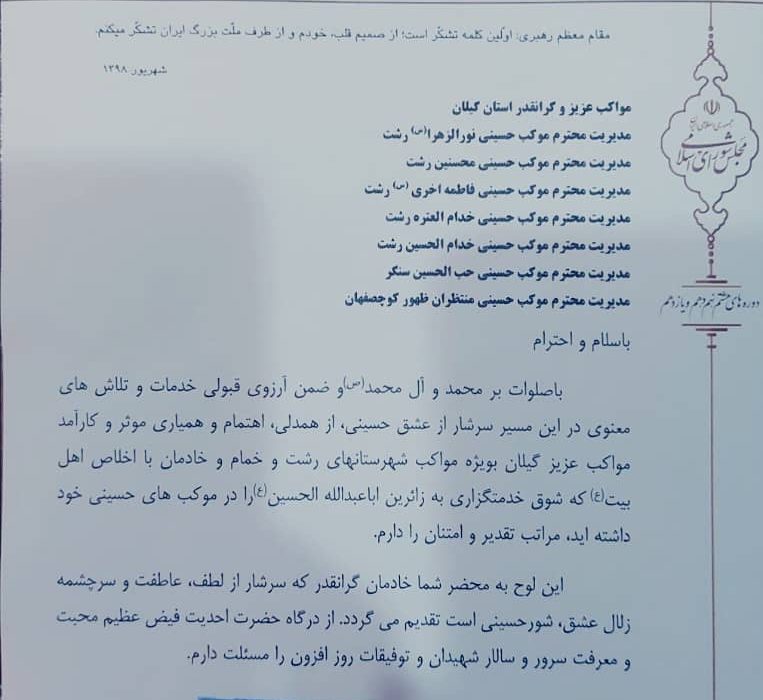 مقام معظم رهبری: اولین کلمه تشکّر است؛ از صمیم قلب، خودم و از طرف ملّت بزرگ ایران تشکّر میکنم.
شهریور ۱۳۹۸
جمهوری اسلامی
مجلس شورای اسلامی
دوره های هشتم نهم دهم و یازدهم
مواکب عزیز و گرانقدر استان گیلان
مدیریت محترم موکب حسینی نورالزهرا(س) رشت
مدیریت محترم موکب حسینی محسنین رشت
مدیریت محترم موکب حسینی فاطمه اخری (س) رشت
مدیریت محترم موکب حسینی خدام العتره رشت
مدیریت محترم موکب حسینی خدام الحسین رشت
مدیریت محترم موکب حسینی حب الحسین سنگر
مدیریت محترم موکب حسینی منتظران ظهور کوچصفهان
باسلام و احترام
باصلوات بر محمد و آل محمد(ص)و ضمن آرزوی قبولی خدمات و تلاش های
معنوی در این مسیر سرشار از عشق حسینی، از همدلی، اهتمام و همیاری موثر و کارآمد
مواکب عزیز گیلان بویژه مواکب شهرستانهای رشت و خمام و خادمان با اخلاص اهل
بیت(ع) که شوق خدمتگزاری به زائرین اباعبدالله الحسین(ع)را در موکب های حسینی خود
داشته اید، مراتب تقدیر و امتنان را دارم.
این لوح به محضر شما خادمان گرانقدر که سرشار از لطف، عاطفت و سرچشمه
زلال عشق، شورحسینی است تقدیم می گردد. از درگاه حضرت احدیت فیض عظیم محبت
و معرفت سرور و سالار شهیدان و توفیقات روز افزون را مسئلت دارم.